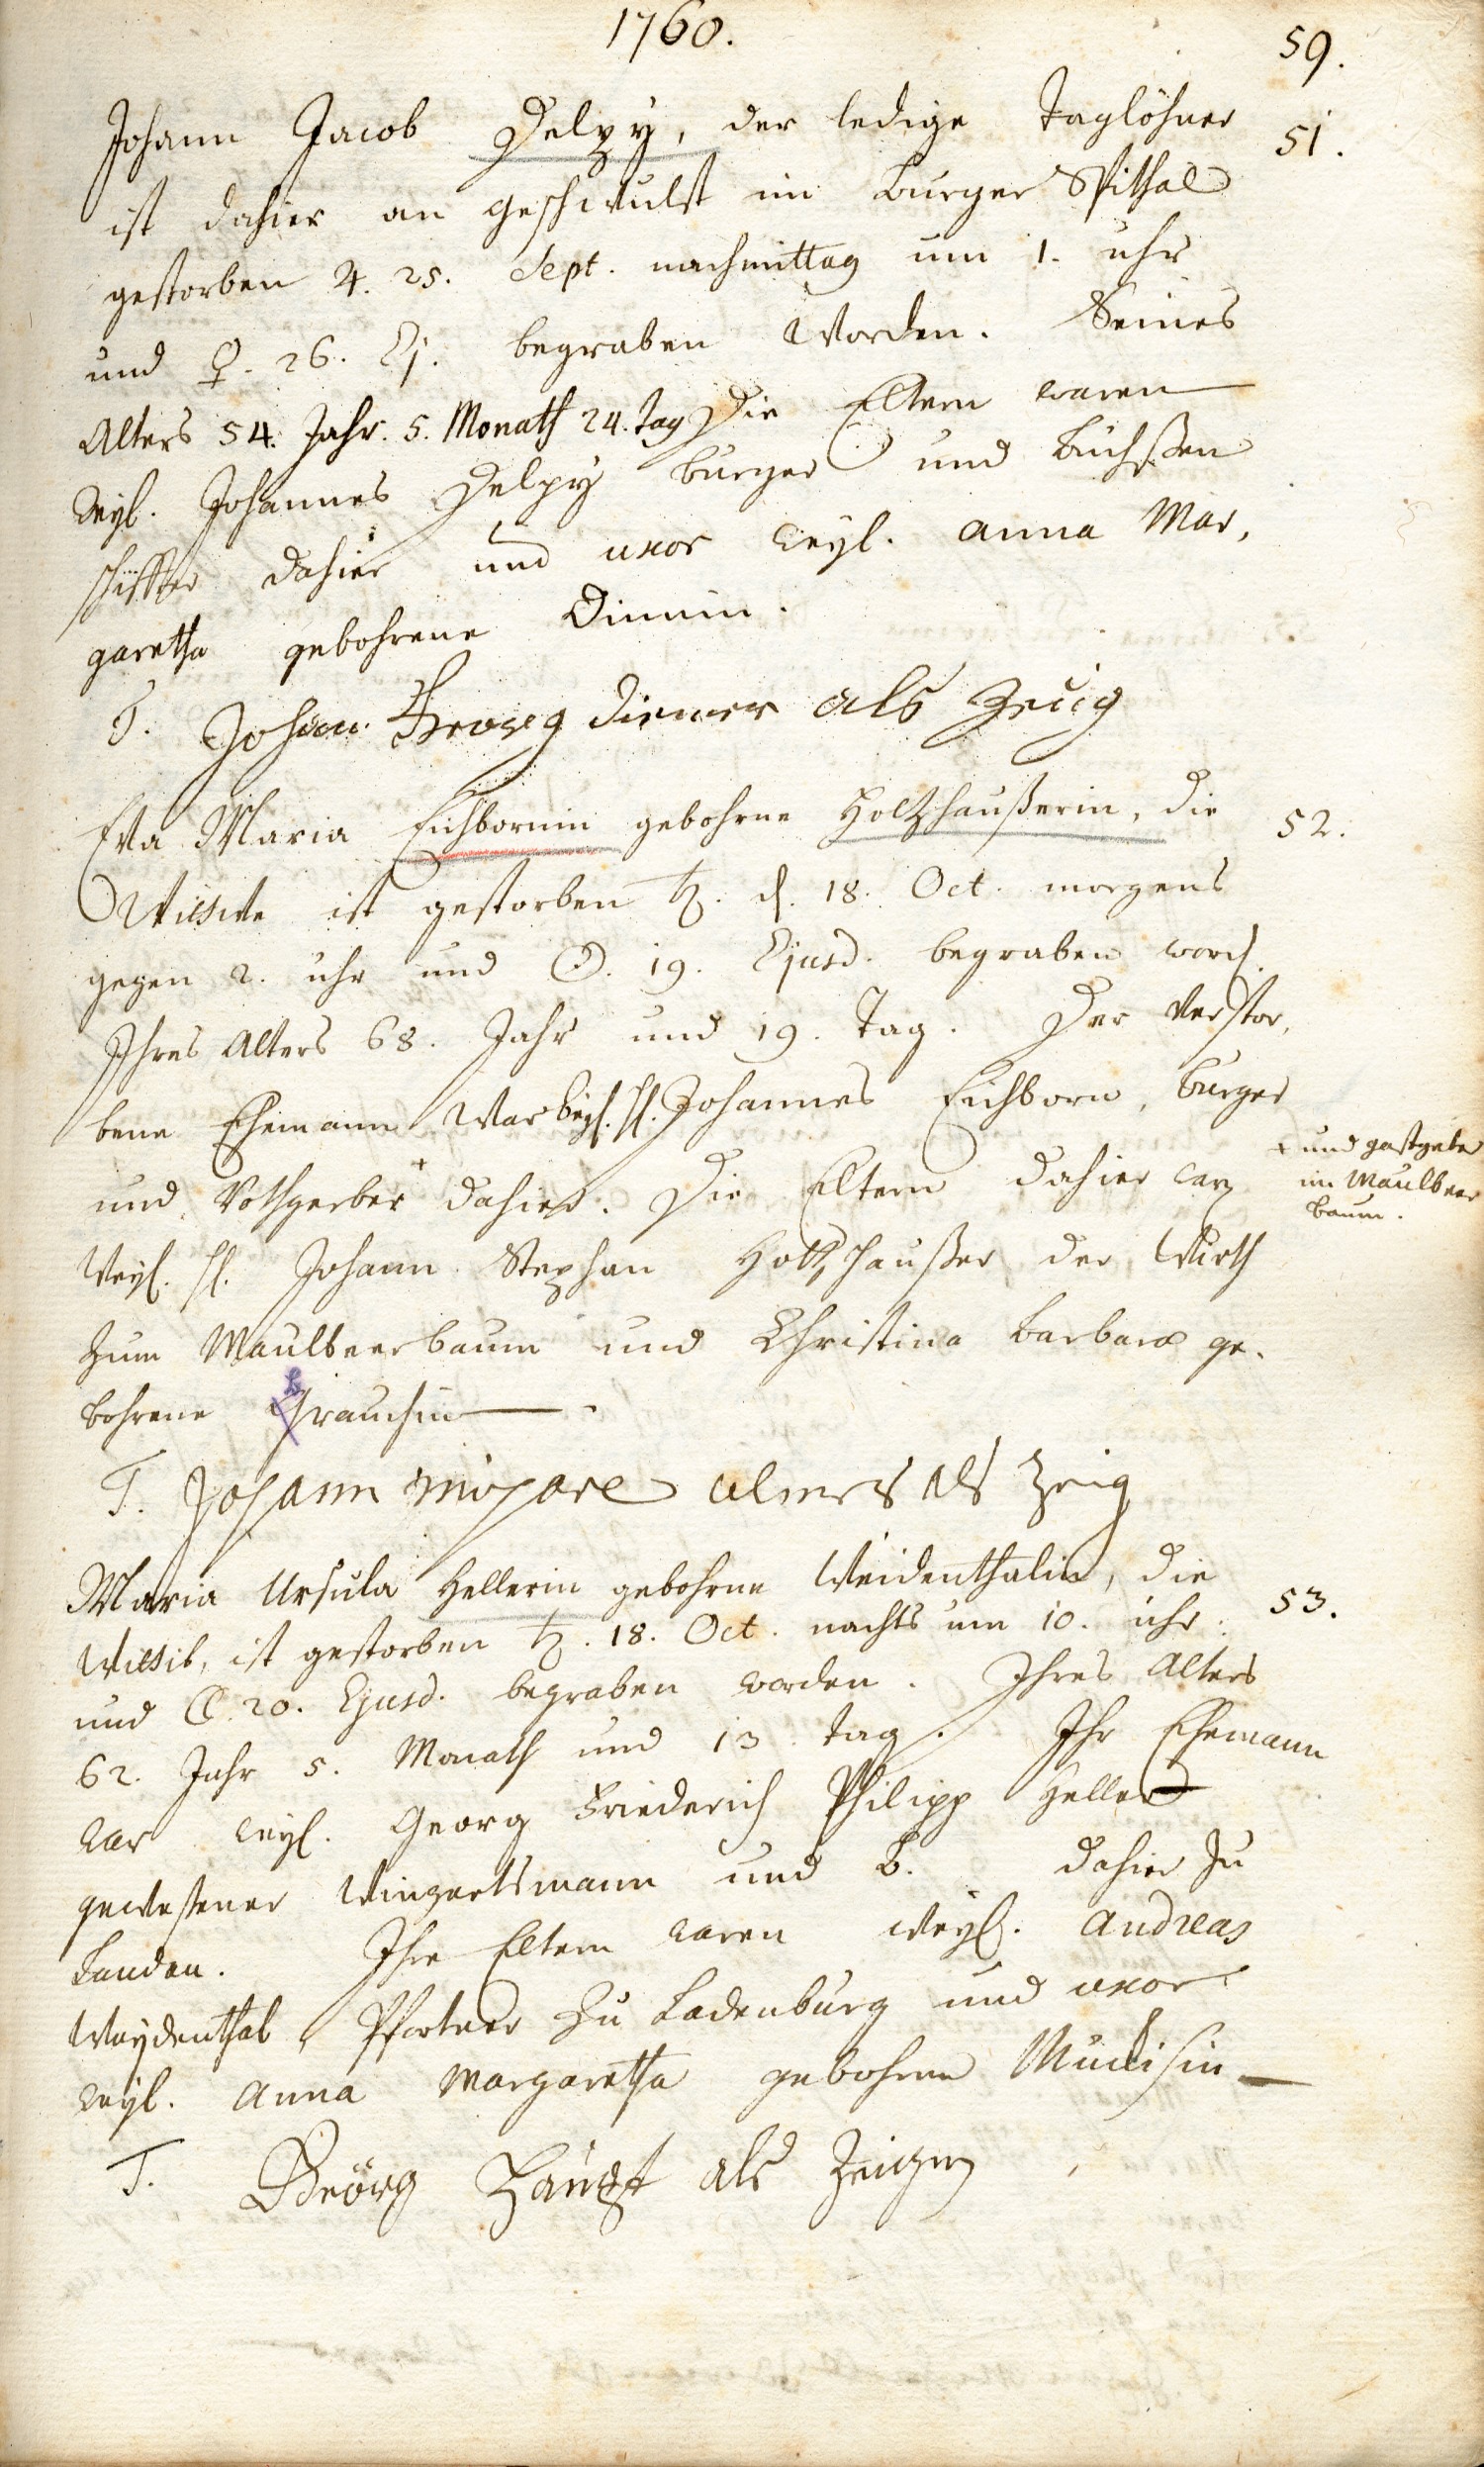 1760.
59.
Johann Jacob Delpy, der ledige Taglöhner
51.
ist dahier an geschwulst im Burger Spithal
gestorben ♃. 25. Sept. nachmittag um 1. uhr
und ♀. 26. Ej. begraben worden. Seines
Alters 54. Jahr. 5. Monath 24. Tag Die Eltern waren
weyl. Johannes Delpy burger und büchßen
schiffter dahier und uxor weyl. anna Mar,
garetha gebohrene
T. Johan Georg Diemer als Zeug
Eva Maria Eichbornin gebohrne Holtzhaußerin, die
52.
Wittwe ist gestorben ♄. d. 18. Oct. morgens
gegen 2. uhr und ☉. 19. Ejusd. begraben word.
Ihres Alters 68. Jahr und 19. Tag. Der verstor,
bene Ehemann war weyl. H. Johannes Eichborn, burger
und Rothgerber + dahier. Die Eltern dahier war
+ und gastgeber
im Maulbeer
baum.
Weyl. H. Johann Stephan Holtzhaußer der Wirth
zum Maulbeerbaum und Christina Barbara ge.
bohrene Grauchin
T. Johann als Zeig
Maria Ursula Hellerin gebohrne Weidenthalin, die
53.
Wittib, ist gestorben ♄. 18. Oct. nachts um 10. uhr.
und ☾. 20. Ejusd. begraben worden. Ihres Alters
62. Jahr 5. Monath und 13 tag. Ihr Ehemann
war weyl. Georg Friederich Philipp Heller
gewesener Wingertsmann und B. dahier zu
Landen. Ihre Eltern waren weyl. Andreas
Weydenthal, Pfortner zu Ladenburg und uxor
weyl. Anna Margaretha gebohrne
T. Geörg Haupt als Zeugen